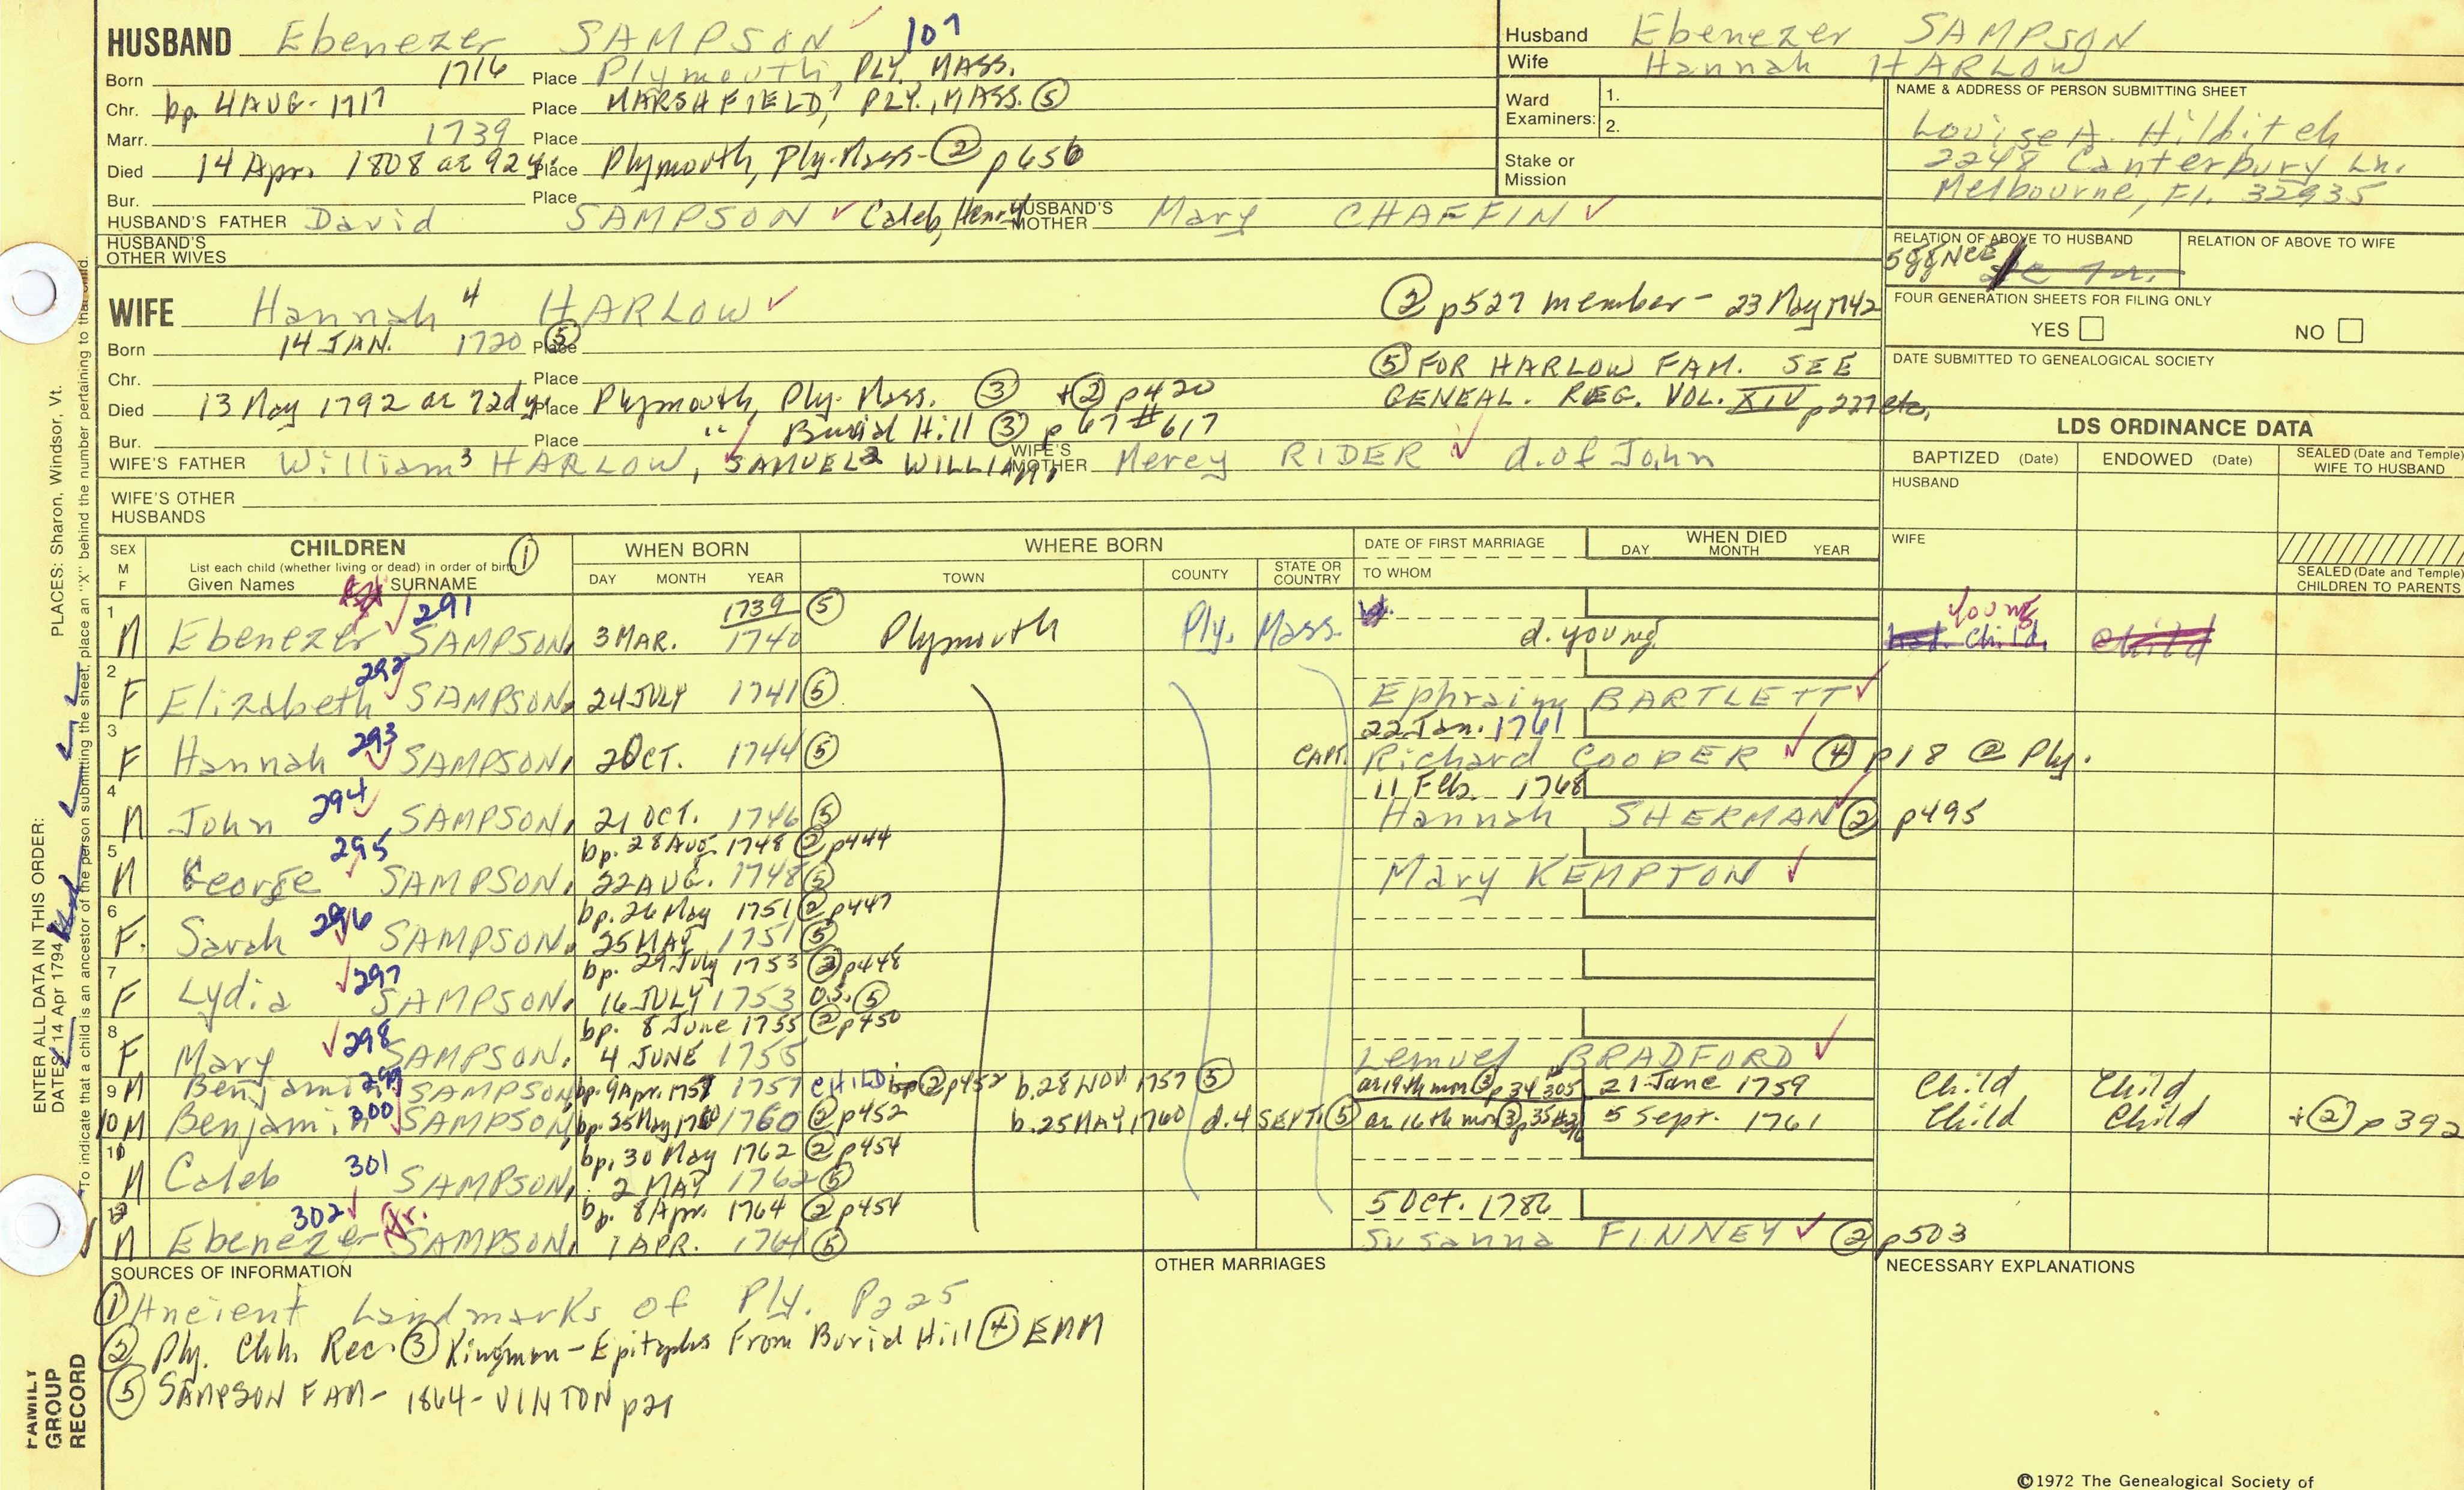 HUSBAND Ebenezer SAMPSON 107
Born 1716 Place Plymouth, PLY. MASS.
Chr. bp. 4 AUG. 1717 Place MARSHFIELD, PLY., MASS. ⑤
Marr. 1739 Place
Died 14 Apr. 1808 ae 92 y. Place Plymouth, Ply. Mass- ② p656
Bur. Place
HUSBAND'S FATHER David SAMPSON Caleb, Henry HUSBAND'S MOTHER Mary CHAFFIN
HUSBAND'S OTHER WIVES
Husband Ebenezer SAMPSON
Wife Hannah HARLOW
Ward Examiners: 1.
2.
Stake or Mission
NAME & ADDRESS OF PERSON SUBMITTING SHEET
Louise A. Hilbitch
2248 Canterbury Ln.
Melbourne, Fl. 32935
RELATION OF ABOVE TO HUSBAND RELATION OF ABOVE TO WIFE
5ggNCE
FOUR GENERATION SHEETS FOR FILING ONLY
YES NO
DATE SUBMITTED TO GENEALOGICAL SOCIETY
WIFE Hannah 4 HARLOW
② p527 member - 23 May 1742
Born 14 JAN. 1720 ⑤ Place
⑤ FOR HARLOW FAM. SEE
Chr. Place
GENEAL. REG. VOL. XIV p227 etc.
Died 13 May 1792 ae 72d y. Place Plymouth, Ply. Mass. ③ + ② p420
Bur. Place " Burial Hill ③ p67 #617
WIFE'S FATHER William 3 HARLOW, SAMUEL 2 WILLIAM 1 WIFE'S MOTHER Mercy RIDER d. of John
WIFE'S OTHER HUSBANDS
LDS ORDINANCE DATA
BAPTIZED (Date) ENDOWED (Date) SEALED (Date and Temple) WIFE TO HUSBAND
HUSBAND
WIFE
SEALED (Date and Temple) CHILDREN TO PARENTS
SEX M F CHILDREN ① WHEN BORN WHERE BORN DATE OF FIRST MARRIAGE WHEN DIED DAY MONTH YEAR
List each child (whether living or dead) in order of birth
Given Names SURNAME DAY MONTH YEAR TOWN COUNTY STATE OR COUNTRY TO WHOM
1 291 1739 ⑤ young
M Ebenezer SAMPSON 3 MAR. 1740 Plymouth Ply. Mass. d. young Child Child
2 292
F Elizabeth SAMPSON 24 JULY 1741 ⑤ Ephraim BARTLETT
3 293 22 Jan. 1761
F Hannah SAMPSON 2 OCT. 1744 ⑤ CAPT. Richard COOPER ④ p18 @ Ply.
4 294 11 Feb. 1768
M John SAMPSON 21 OCT. 1746 ⑤ Hannah SHERMAN ② p495
5 295 bp. 28 Aug. 1748 ② p444
M George SAMPSON 22 AUG. 1748 ⑤ Mary KEMPTON
6 296 bp. 26 May 1751 ② p447
F. Sarah SAMPSON 25 MAY 1751 ⑤
7 297 bp. 29 July 1753 ② p448
F Lydia SAMPSON 16 JULY 1753 O.S. ⑤
8 298 bp. 8 June 1755 ② p450
F Mary SAMPSON 4 JUNE 1755 Lemuel BRADFORD
9 M Benjamin 299 SAMPSON bp. 9 Apr. 1757 1757 CHILD bp ② p452 b. 28 NOV. 1757 ⑤ ae 19th mon ③ p34 305 21 June 1759 Child Child
10 M Benjamin 300 SAMPSON bp. 25 May 1760 1760 ② p452 b. 25 MAY 1760 d. 4 SEPT. ⑤ ae 16th mon ③ 5 Sept. 1761 Child Child + ② p392
301 bp. 30 May 1762 ② p454
M Caleb SAMPSON 2 MAY 1762 ⑤
302 Jr. bp. 8 Apr. 1764 ② p454 5 Oct. 1786
M Ebenezer SAMPSON 1 APR. 1764 ⑤ Susanna FINNEY ② p503
SOURCES OF INFORMATION OTHER MARRIAGES NECESSARY EXPLANATIONS
① Ancient Landmarks of Ply. P225
② Ply. Chh. Rec. ③ Kingman - Epitaphs From Burial Hill ④ EMM
⑤ SAMPSON FAM - 1864 - VINTON p21
©1972 The Genealogical Society of
ENTER ALL DATA IN THIS ORDER:
DATES: 14 Apr 1794
PLACES: Sharon, Windsor, Vt.
To indicate that a child is an ancestor of the person submitting the sheet, place an "X" behind the number pertaining to that child.
FAMILY GROUP RECORD